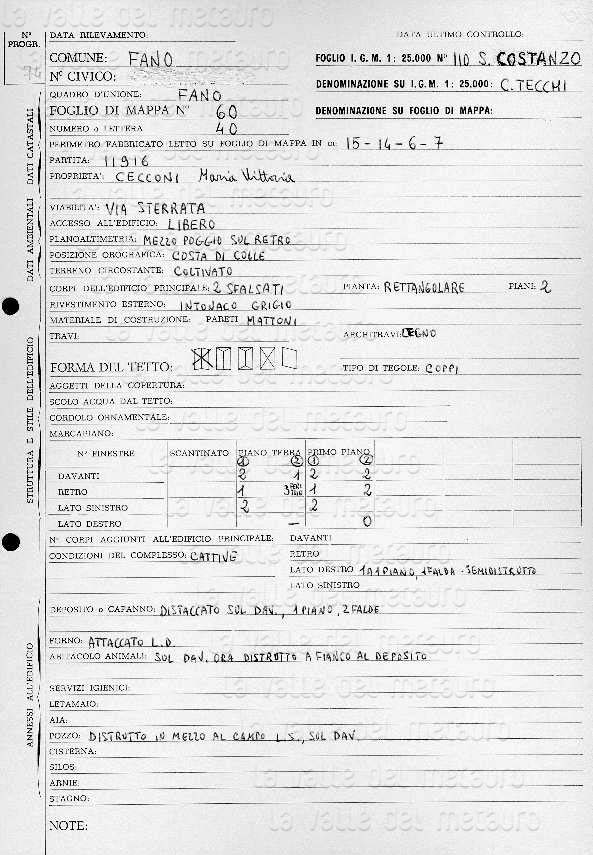 N° PROGR.
DATA RILEVAMENTO: DATA ULTIMO CONTROLLO:
COMUNE: FANO FOGLIO I. G. M. 1: 25.000 N° 110 S. COSTANZO
N° CIVICO: DENOMINAZIONE SU I.G.M. 1: 25.000: C. TECCHI
QUADRO D'UNIONE: FANO
FOGLIO DI MAPPA N° 60 DENOMINAZIONE SU FOGLIO DI MAPPA:
NUMERO o LETTERA 40
PERIMETRO FABBRICATO LETTO SU FOGLIO DI MAPPA IN 15-14-6-7
PARTITA: 11916
PROPRIETA': CECCONI Maria Vittoria
VIABILITA': VIA STERRATA
ACCESSO ALL'EDIFICIO: LIBERO
PLANOALTIMETRIA: MEZZO POGGIO SUL RETRO
POSIZIONE OROGRAFICA: COSTA DI COLLE
TERRENO CIRCOSTANTE: COLTIVATO
CORPI DELL'EDIFICIO PRINCIPALE: 2 SFALSATI PIANTA: RETTANGOLARE PIANI: 2
RIVESTIMENTO ESTERNO: INTONACO GRIGIO
MATERIALE DI COSTRUZIONE: PARETI MATTONI
TRAVI: ARCHITRAVI: LEGNO
FORMA DEL TETTO: TIPO DI TEGOLE: COPPI
AGGETTI DELLA COPERTURA:
SCOLO ACQUA DAL TETTO:
CORDOLO ORNAMENTALE:
MARCAPIANO:
N° FINESTRE SCANTINATO PIANO TERRA PRIMO PIANO
1 2 1 2
DAVANTI 2 1 2 2
RETRO 1 3 1 2
LATO SINISTRO 2 2
LATO DESTRO – 0
N° CORPI AGGIUNTI ALL'EDIFICIO PRINCIPALE: DAVANTI
CONDIZIONI DEL COMPLESSO: CATTIVE RETRO
LATO DESTRO 1 A 1 PIANO, 1 FALDA - SEMIDISTRUTTO
LATO SINISTRO
DEPOSITO o CAPANNO: DISTACCATO SUL DAV., 1 PIANO, 2 FALDE
FORNO: ATTACCATO L.D.
ABITACOLO ANIMALI: SUL DAV. ORA DISTRUTTO A FIANCO AL DEPOSITO
SERVIZI IGIENICI:
LETAMAIO:
AIA:
POZZO: DISTRUTTO IN MEZZO AL CAMPO L.S., SUL DAV.
CISTERNA:
SILOS:
ARNIE:
STAGNO:
NOTE:
DATI CATASTALI
DATI AMBIENTALI
STRUTTURA E STILE DELL'EDIFICIO
ANNESSI ALL'EDIFICIO
la valle del metauro